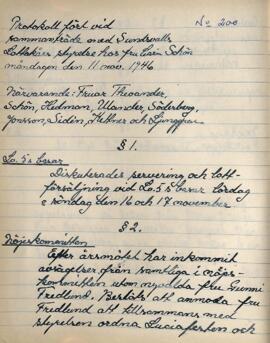 Protokoll fört vid No 200
sammanträde med Sundsvalls
Lottakårs styrelse hos fru Carin Schön
måndagen den 11 nov. 1946
Närvarande: Fruar Thorander,
Schön, Hedman, Ulander, Söderberg,
Jonsson, Sidén, Kettner och Ljunggren.
§ 1.
Lo. 5's basar
Diskuterades servering och lott-
försäljning vid Lo. 5's basar lördag
o söndag den 16 och 17 november
§ 2.
Nöjeskommittén
Efter årsmötet har inkommit
avsägelser från samtliga i nöjes-
kommittén utom nyvalda fru Gunni
Fredlund. Beslöts att anmoda fru
Fredlund att tillsammans med
styrelsen ordna Luciafesten och